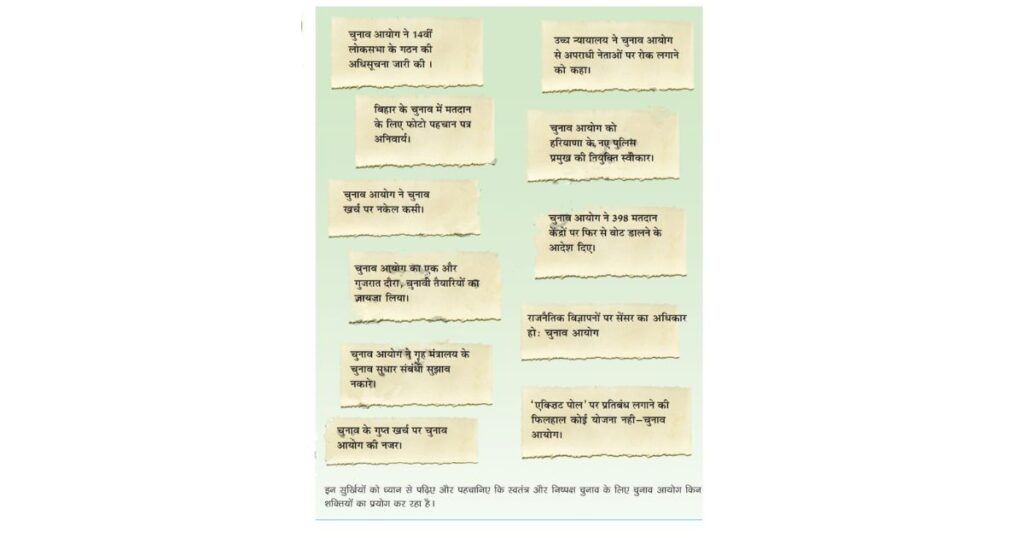 चुनाव आयोग ने 14वीं
लोकसभा के गठन की
अधिसूचना जारी की ।
बिहार के चुनाव में मतदान
के लिए फोटो पहचान पत्र
अनिवार्य।
चुनाव आयोग ने चुनाव
खर्च पर नकेल कसी।
चुनाव आयोग का एक और
गुजरात दौरा, चुनावी तैयारियों का
ज़ायज़ा लिया।
चुनाव आयोग ने गृह मंत्रालय के
चुनाव सुधार संबंधी सुझाव
नकारे।
चुनाव के गुप्त खर्च पर चुनाव
आयोग की नजर।
उच्च न्यायालय ने चुनाव आयोग
से अपराधी नेताओं पर रोक लगाने
को कहा।
चुनाव आयोग को
हरियाणा के नए पुलिस
प्रमुख की नियुक्ति स्वीकार।
चुनाव आयोग ने 398 मतदान
केंद्रों पर फिर से वोट डालने के
आदेश दिए।
राजनैतिक विज्ञापनों पर सेंसर का अधिकार
हो: चुनाव आयोग
'एक्ज़िट पोल' पर प्रतिबंध लगाने की
फिलहाल कोई योजना नही–चुनाव
आयोग।
इन सुर्खियों को ध्यान से पढ़िए और पहचानिए कि स्वतंत्र और निष्पक्ष चुनाव के लिए चुनाव आयोग किन
शक्तियों का प्रयोग कर रहा है।